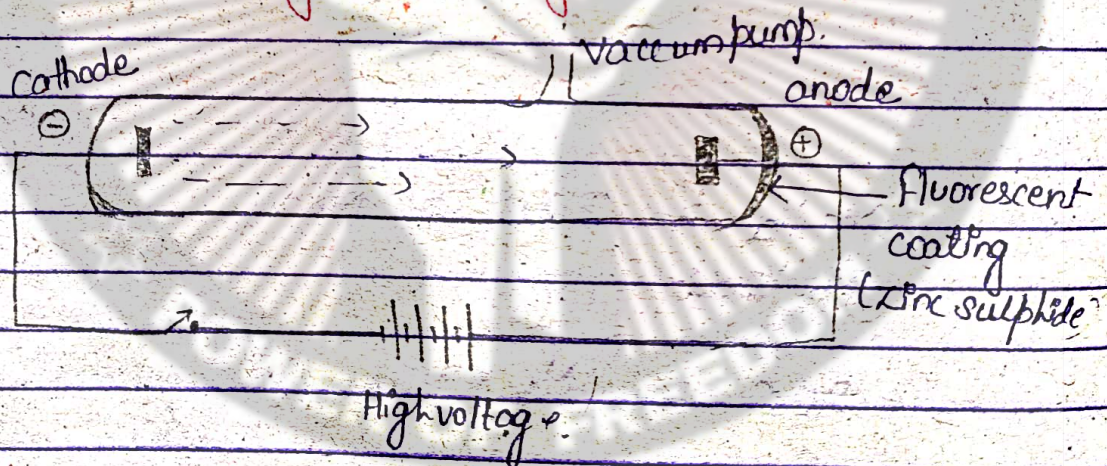 vaccum pump.
cathode
anode
fluorescent
coating
(Zinc sulphide
High voltage.